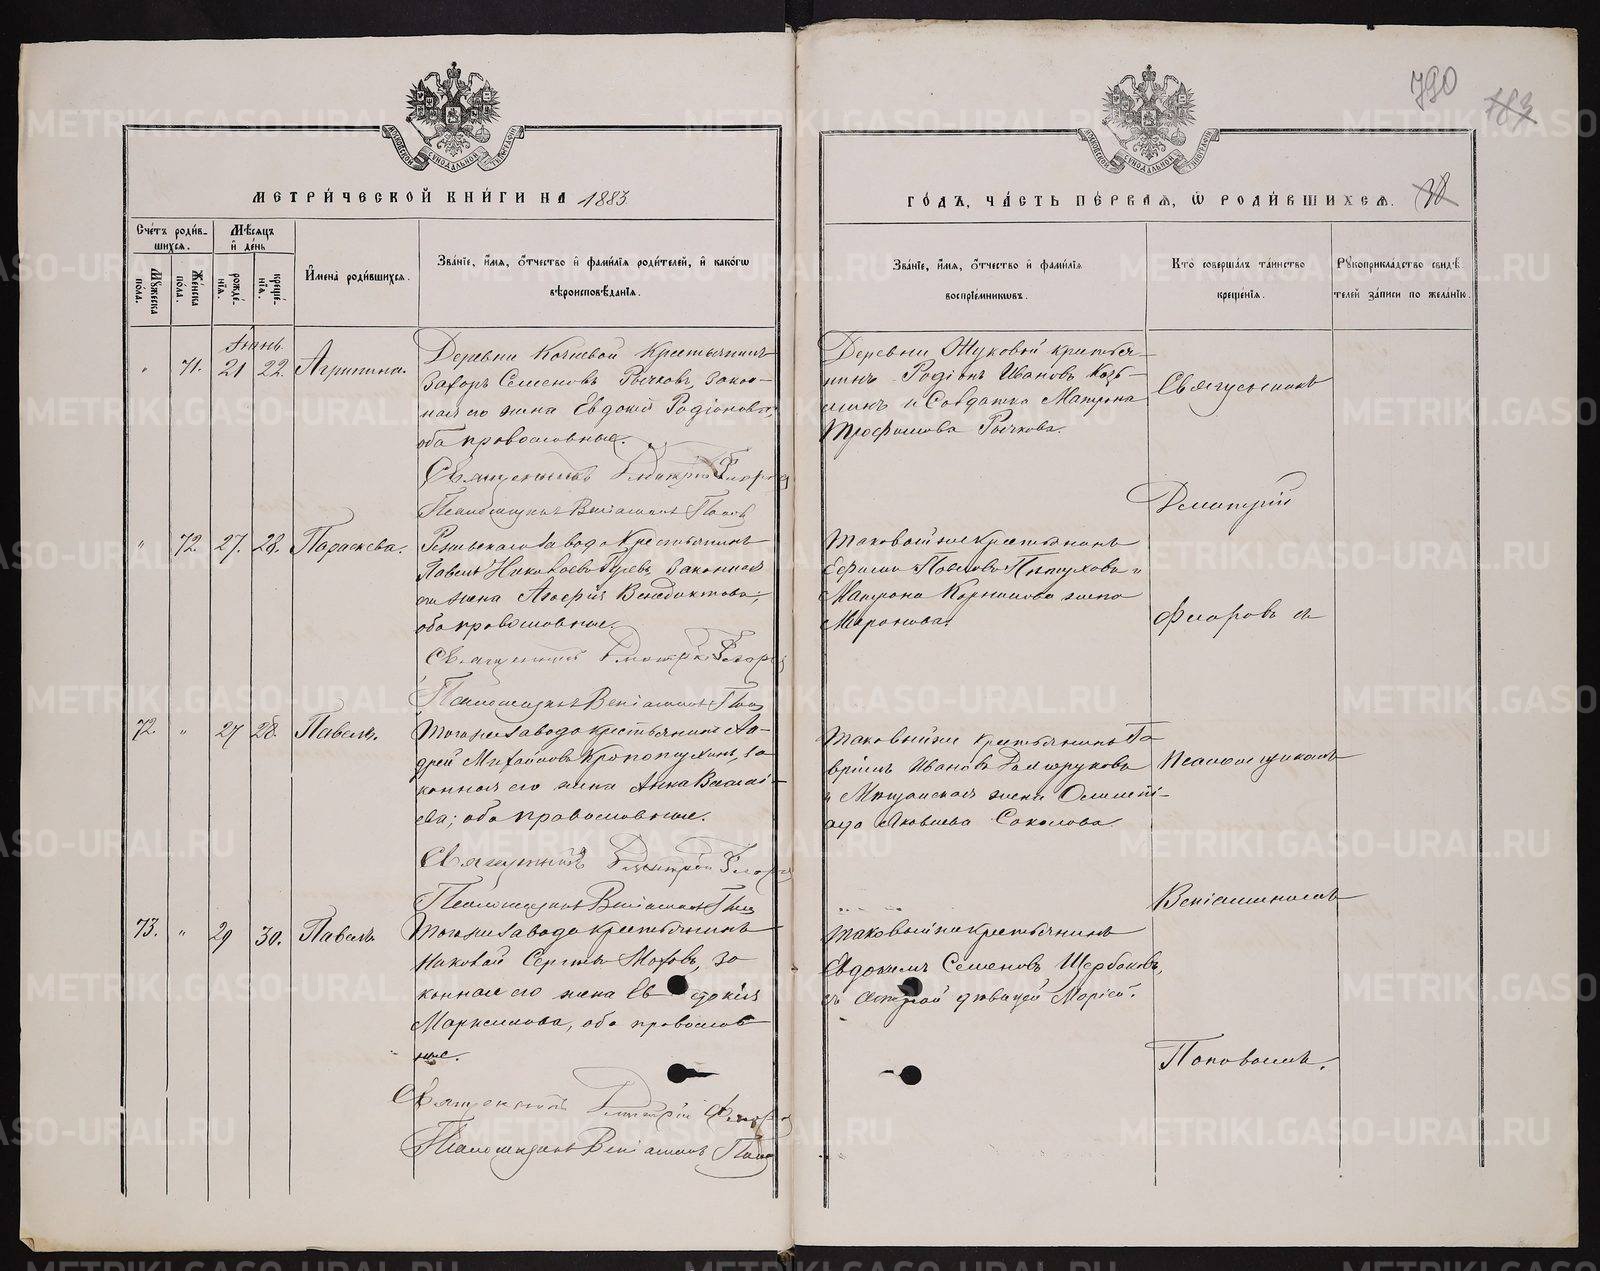 790
183
МОСКОВСКОЙ СѴНОДАЛЬНОЙ ТѴПОГРАФІИ
МОСКОВСКОЙ СѴНОДАЛЬНОЙ ТѴПОГРАФІИ
МЕТРИ́ЧЕСКОЙ КНИ́ГИ НА 1883
ГО́ДЪ, ЧА́СТЬ ПЕ́РВАЯ, Ѡ РОДИ́ВШИХСЯ.
Сче́тъ роди́в-
шихся.
Мѣ́сяцъ
и́ де́нь
Му́жеска
по́ла.
Же́нска
по́ла.
рожде́-
нія.
креще́-
нія.
И́мена̀ роди́вшихся.
Зва́ніе, и́мя, ѻ́тчество и́ фами́лія роди́телей, и́ како́гѡ
вѣроисповѣ́данія.
Зва́ніе, и́мя, ѻ́тчество и́ фами́лія
воспріе́мниковъ.
Кто̀ соверша́лъ та́инство
креще́нія.
Рꙋкоприкла́дство свидѣ́-
телей за́писи по жела́нію.
Іюнь
" 71. 21 22. Агрипина.
Деревни Кочневой крестьянинъ
Захоръ Семеновъ Рычковъ, закон-
ная его жена Евдокія Родіонова,
оба православные.
Священникъ Димитрій Флоро
Псаломщикъ Веніаминъ Поповъ
Деревни Жуковой крестья-
нинъ Родіонъ Ивановъ Козь-
минъ и Солдатка Матрона
Трофимова Рычкова.
Священникъ
Димитрій
" 72. 27. 28. Параскева.
Режевскаго завода крестьянинъ
Павелъ Николаевъ законная
его жена Агафія Венедиктова,
оба православные.
Священникъ Димитрій Флоро
Псаломщикъ Веніаминъ Поповъ
Таковойже крестьянинъ
Ефимъ Павловъ Пѣтуховъ и
Матрона Корнилова жена
Миронова.
Флоровъ съ
72. " 27 28. Павелъ.
Тогоже завода крестьянинъ Ан-
дрей Михайловъ за-
конная его жена Анна Василь-
ева; оба православные.
Священникъ Димитрій Флоро
Псаломщикъ Веніаминъ Поповъ
Таковыйже крестьянинъ Га-
вріилъ Ивановъ
и Мѣщанская жена Олимпі-
ада Яковлева Соколова.
Псаломщикомъ
Веніаминомъ
73. " 29 30. Павелъ
Тогоже завода крестьянинъ
Сергѣевъ Моховъ, за-
конная его жена Евдокія
Маркелова, оба православ-
ные.
Священникъ Димитрій Флоро
Псаломщикъ Веніаминъ Попо
Таковыйже крестьянинъ
Евдокимъ Семеновъ Щербаковъ,
съ сестрой дѣвицей Маріей.
Поповымъ.
METRIKI.GASO-URAL.RU